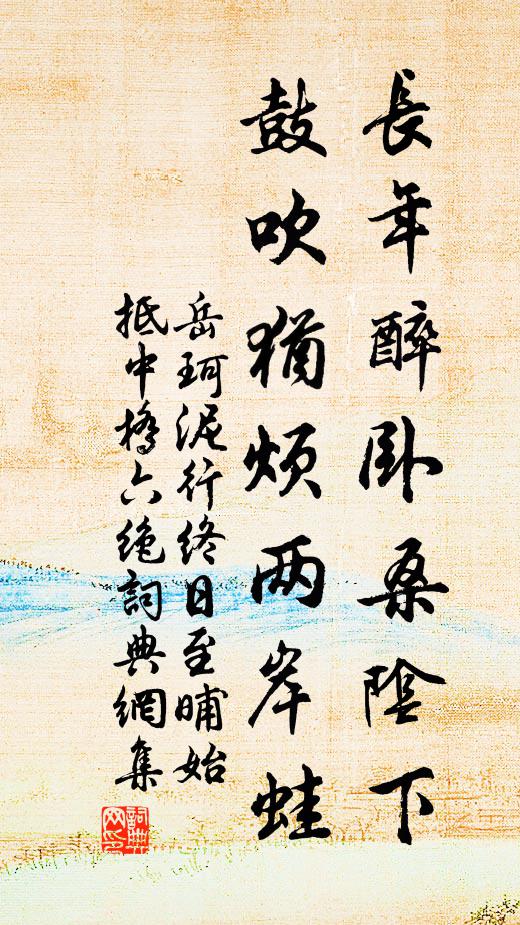 長年醉卧桑陰下
鼓吹猶煩两岸蛙
岳珂泥行終日至晡始
抵中橋六絶詞典網集
詞典网印